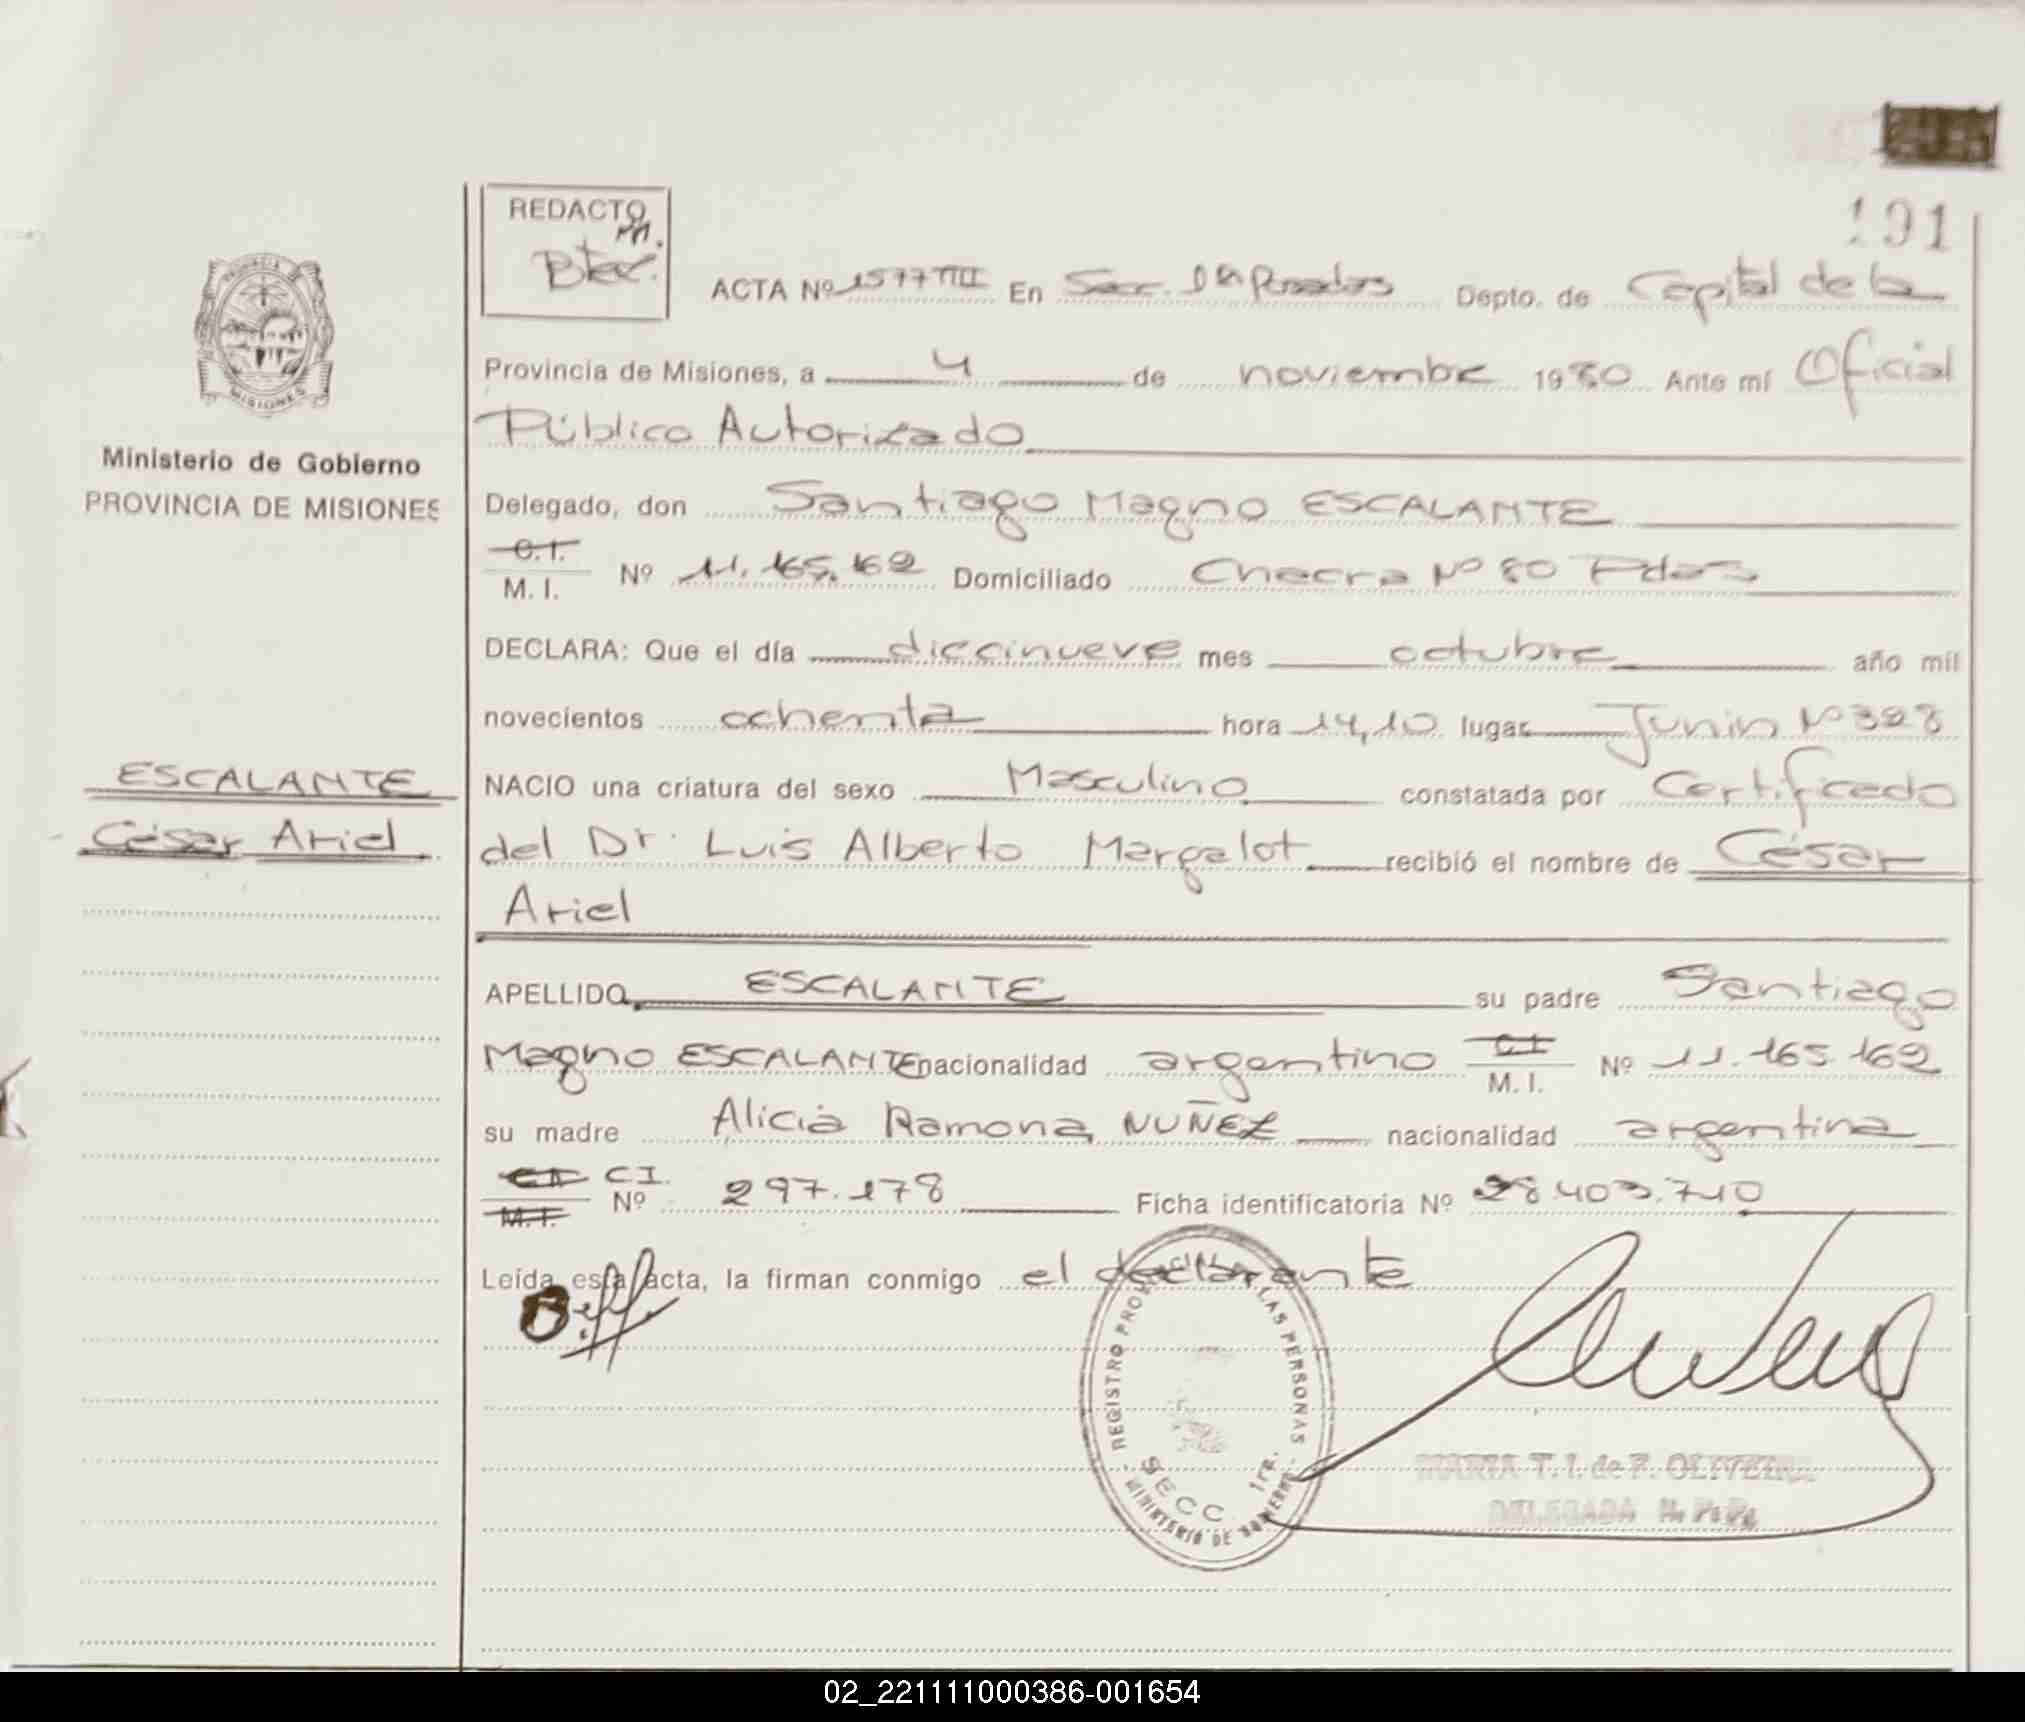 191
REDACTO
ACTA Nº 1577 TIII En Secc. 1ª Posadas Depto. de Capital de la
Provincia de Misiones, a 4 de noviembre 1980 Ante mí Oficial
Público Autorizado
Ministerio de Gobierno
PROVINCIA DE MISIONES
Delegado, don Santiago Magno ESCALANTE
C.I.
M. I. Nº 11.165.162 Domiciliado Chacra Nº 80 Pdas
DECLARA: Que el día diecinueve mes octubre año mil
novecientos ochenta hora 14,10 lugar Junin Nº 328
ESCALANTE
César Ariel
NACIO una criatura del sexo Masculino constatada por Certificado
del Dr. Luis Alberto Margalot recibió el nombre de César
Ariel
APELLIDO ESCALANTE su padre Santiago
Magno ESCALANTE nacionalidad argentino C.I. M. I. Nº 11.165.162
su madre Alicia Ramona NUÑEZ nacionalidad argentina
C.I. M. I. CI. Nº 297.178 Ficha identificatoria Nº 28.403.710
Leída esta acta, la firman conmigo el declarante
REGISTRO LAS PERSONAS
SECC. 1ra.
MINISTERIO DE GOBIERNO
MARIA T. I. de F. OLIVEIRA
DELEGADA
02_221111000386-001654